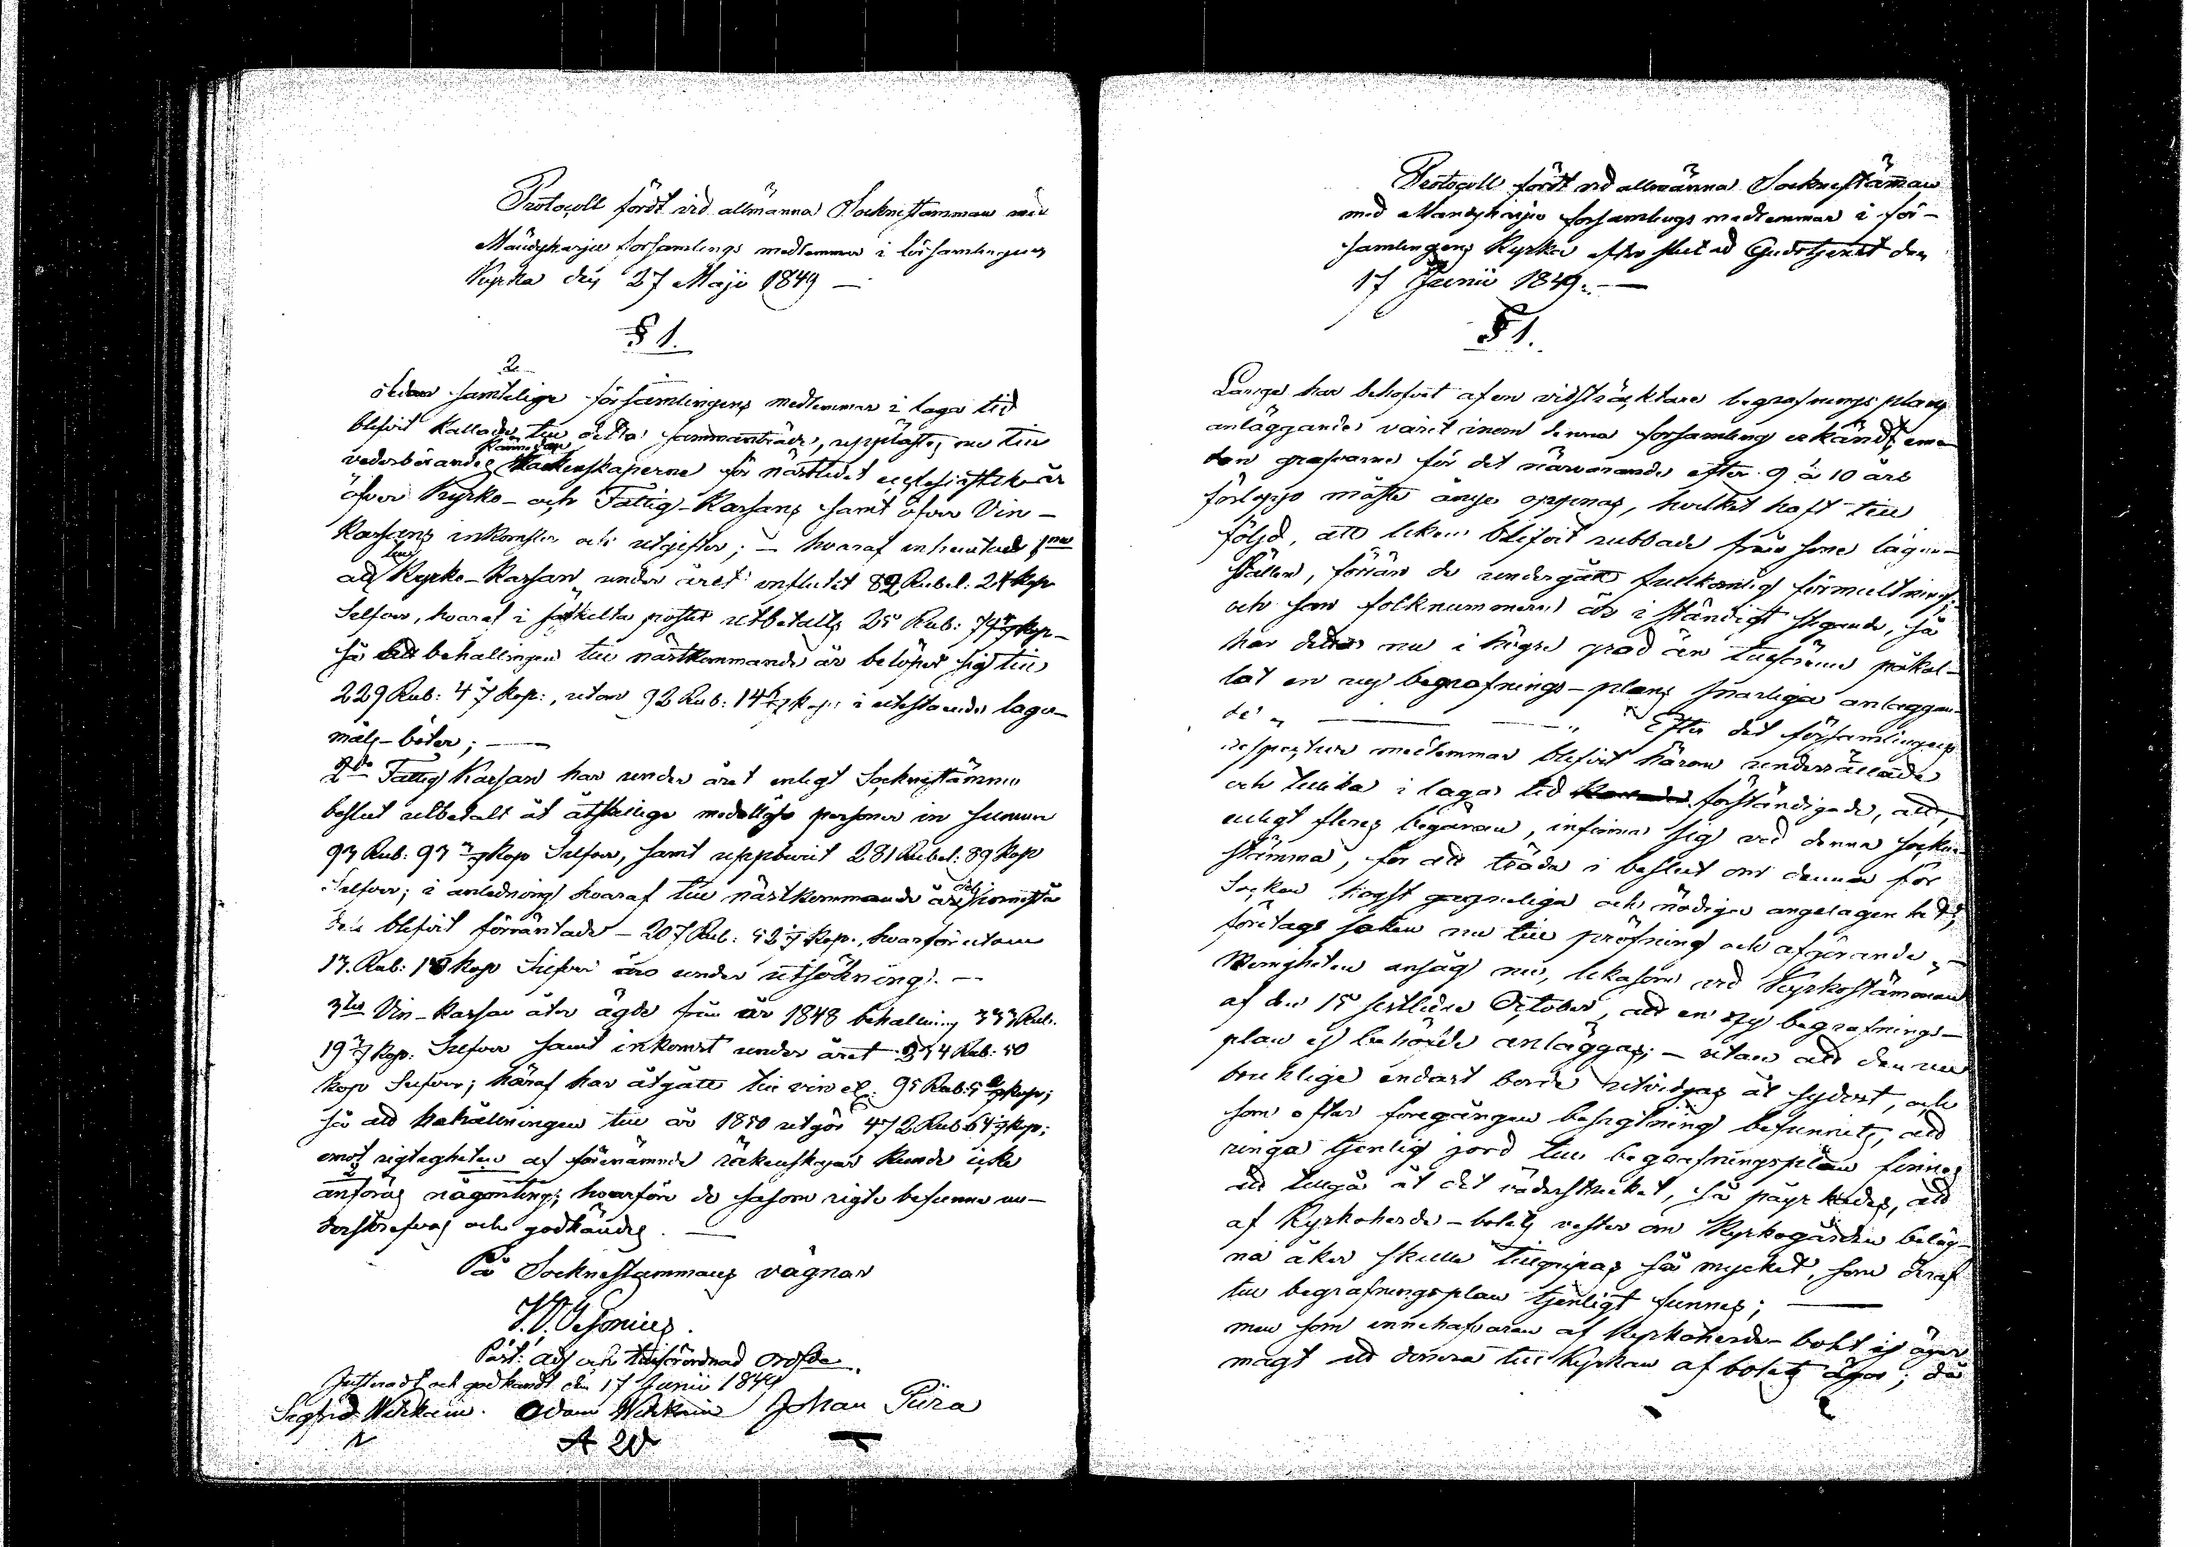 Protocoll fördt vid allmänna Socknestämman med
Mäntyharju församlings medlemmar i församlingens
Kyrka den 27 Maji 1849 —
§ 1.
Sedan samtelige församlingens medlemmar i laga tid
blifvit kallade till detta sammanträde, upplästes nu till
vederbörandes kännedom Räkenskaperne för nästledet ecclesiastik-år
öfver Kyrko- och Fattig-Kassans samt öfver Vin-
Kassans inkomster och utgifter; — hvaraf inhemtades 1mo
att Kyrko-Kassan under året influtit 82 Rubel: 24 Kop
Silfver, hvaraf i särskilta poster utbetalts 25 Rub: Kop
så att behållningen till nästkommande år belöper sig till
229 Rub: 4 Kop:, utom 32 Rub: 14 Kop: i utestående lägers-
måls-böter; —
2do Fattig Kassan har under året enligt Socknestämmo
beslut utbetalt åt åtskillige medellösa personer en summa
93 Rub: 93 Kop Silfver, samt uppburit 281 Rubel: 89 Kop
Silfver; i anledning hvaraf till nästkommande år
blifvit förväntade 207 Rub: 52 Kop., hvarförutom
13. Rub: Kop Silfver äro under utsökning. —
3tio Vin-Kassan åter ägde från år 1848 behållning 333 Rub.
19 Kop: Silfver samt inkomst under året 234 Rub: 50
kop Silfver; häraf har åtgått till vin 95 Rub: Kop;
så att behållningen till år 1850 utgör 472 Rub 64 Kop;
emot rigtigheten af förenämnde räkenskaper kunde icke
anföras någonting; hvarföre de såsom rigte befunne un-
derskrefvos och godkändes. —
På Socknestämmans vägnar
Past: adj och tillförordnad
Justeradt och godkändt den 17 Junii 1849
Sigfrid Adam Johan Pura
Protocoll fördt vid allmänna Socknestämman
med Mäntyharju församlings medlemmar i för-
samlingens Kyrka efter slutad Gudstjenst den
17 Junii 1849. —
§ 1.
Länge har behofvet af en vidsträcktare begrafningsplans
anläggande varit inom denna församling erkändt, eme-
dan grafvarne för det närvarande efter 9 à 10 års
förlopp måste ånyo öppnas, hvilket haft till
följd, att liken blifvit rubbade från sine läger-
ställen, förrän de undergått fullkomlig förmultning;
och som folknummern är i ständigt stigande, så
har detta nu i högre grad än tillförene påkal-
lat en ny begrafnings-plans snarliga anläggan-
de. — Efter det församlingens
respective medlemmar blifvit härom underrättade
och tillika i laga tid förständigade, att,
enligt fleres begäran, infinna sig vid denna sockne-
stämma, för att träda i beslut om denna för
Socken högst angelägna och nödiga angelägenhet;
företogs saken nu till pröfning och afgörande. —
Menigheten ansåg nu, likasom vid Kyrkostämman
af den 15 sistledne October, att en ny begrafnings-
plan ej behöfde anläggas; — utan att den nu
brukliga endast borde utvidgas åt syd, och
som efter föregången besigtning befunnits, att
ringa tjenlig jord till begrafningsplan finnes
att tillgå åt det väderstrecket, så påyrkades, att
af Kyrkoherde-bolets vester om Kyrkogården beläg-
na åker skulle tillgripas så mycket, som deraf
till begrafningsplan tjenligt funnes; —
men som innehafvaren af Kyrkoherde-bolet ej äger
magt att donera till Kyrkan af bolets ägor; då